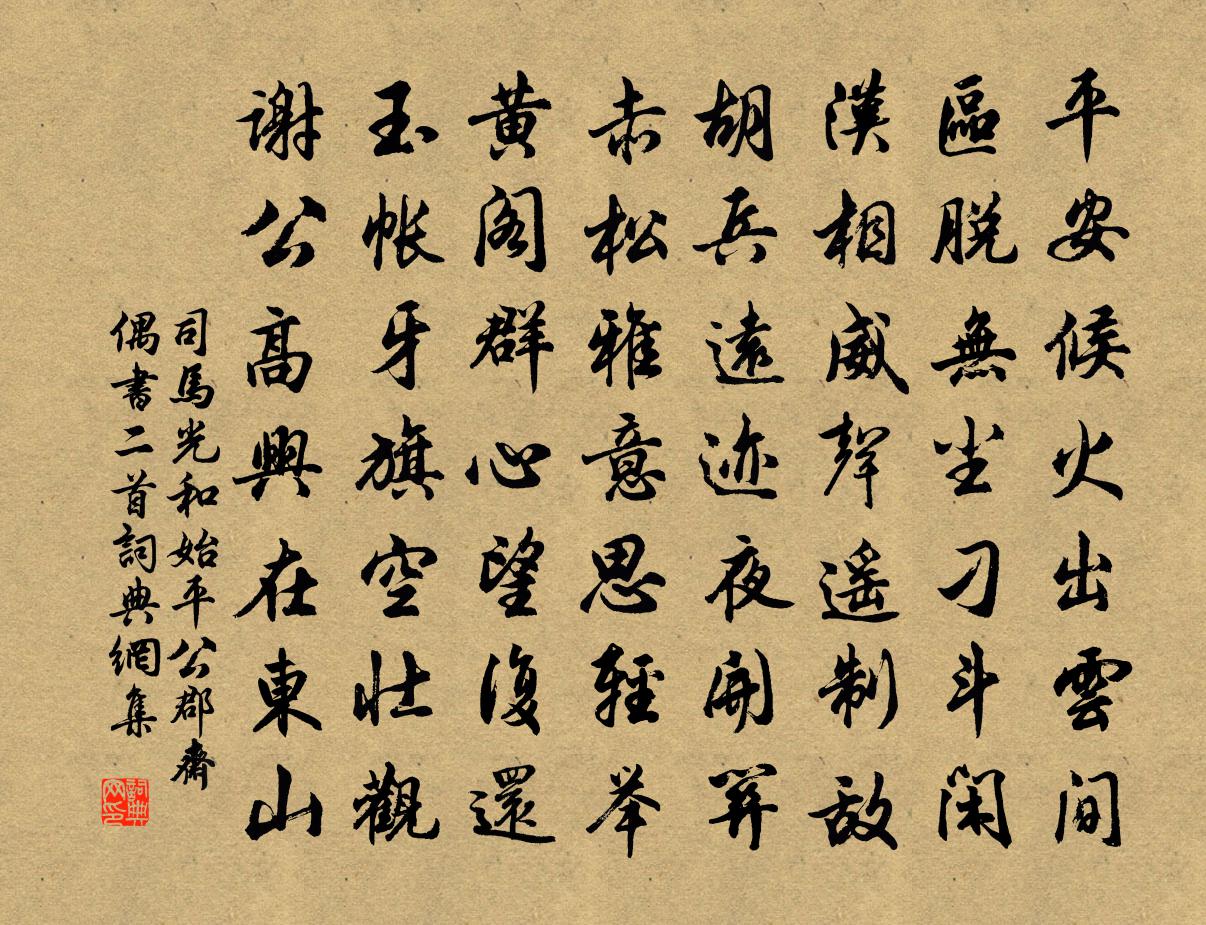 平安候火出雲間
區脱無尘刁斗闲
漢相威聲遥制敌
胡兵遠迹夜開關
赤松雅意思輕举
黄閣群心望復還
玉帐牙旗空壮觀
謝公高興在東山
司馬光和始平公郡齋
偶書二首詞典網集
詞典网印